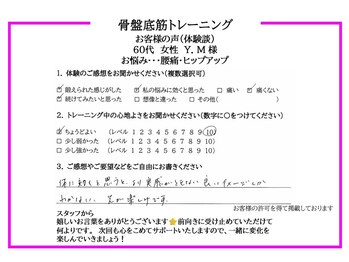 骨盤底筋トレーニング
お客様の声（体験談）
60代 女性 Y. M 様
お悩み･･･腰痛・ヒップアップ
1. ご体験のご感想をお聞かせください（複数選択可）
☑ 鍛えられた感じがした ☑ 私の悩みに効くと思った □ 痛い ☑ 痛くない
☑ 続けてみたいと思った □ 想像と違った □ その他（ ）
2. トレーニング中の心地よさをお聞かせください（数字に○をつけてください）
☑ ちょうどよい （レベル 1 2 3 4 5 6 7 8 9 10）
□ 少し弱かった （レベル 1 2 3 4 5 6 7 8 9 10）
□ 少し強かった （レベル 1 2 3 4 5 6 7 8 9 10）
3. ご感想やご要望などをご自由にお書きください
体に効くと思うと、より
良いイメージしか
わかない、 楽しみです。
お客様の許可を得て掲載しております
スタッフから
嬉しいお言葉をありがとうございます⭐前向きに受け止めていただけて
何よりです。 次回も心をこめてサポートいたしますので、一緒に変化を
楽しんでいきましょう！